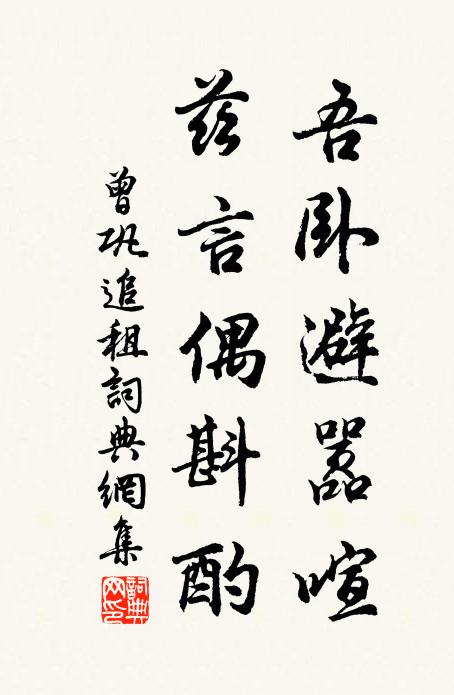 吾卧避嚣喧
兹言偶斟酌
曾巩追租詞典網集
詞典网印